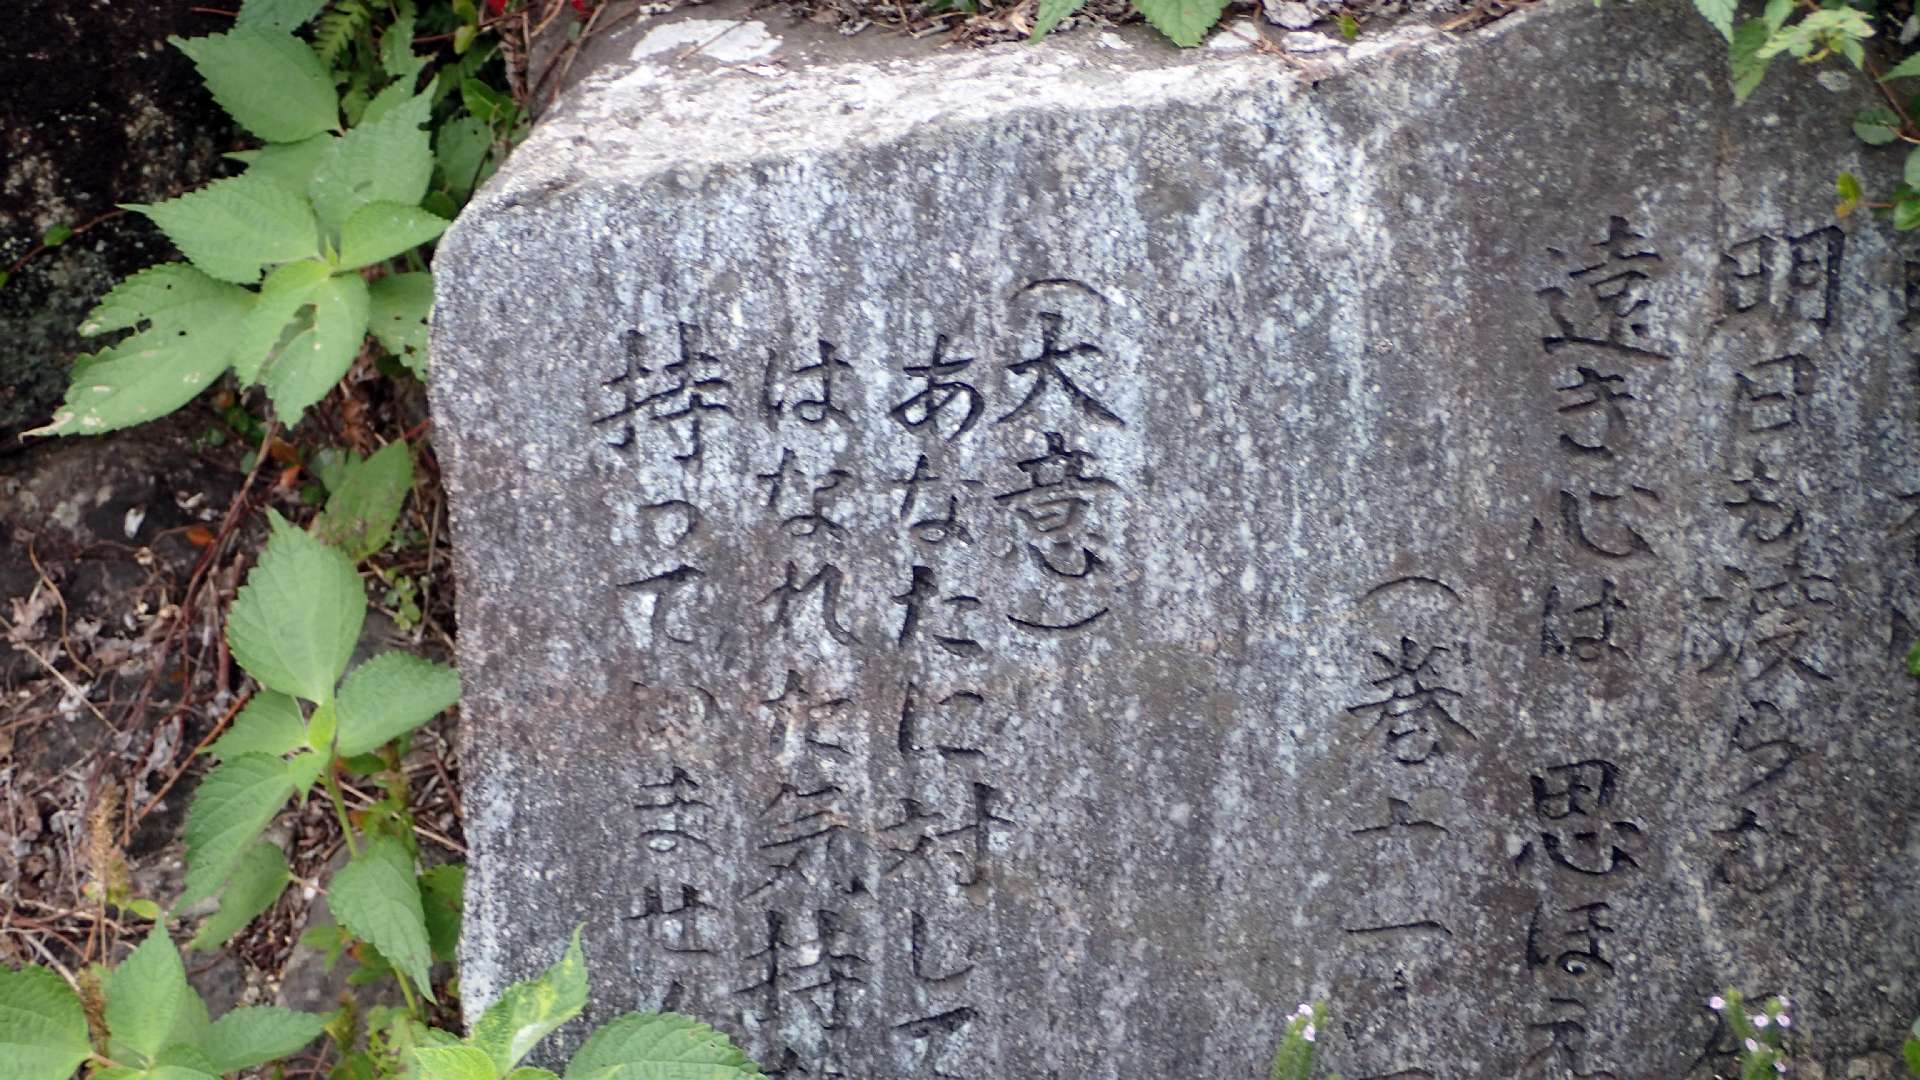 明日も渡らむ
遠き心は 思ほえ
（巻十一
（大意）
あなたに対して
はなれた気持
持っていません